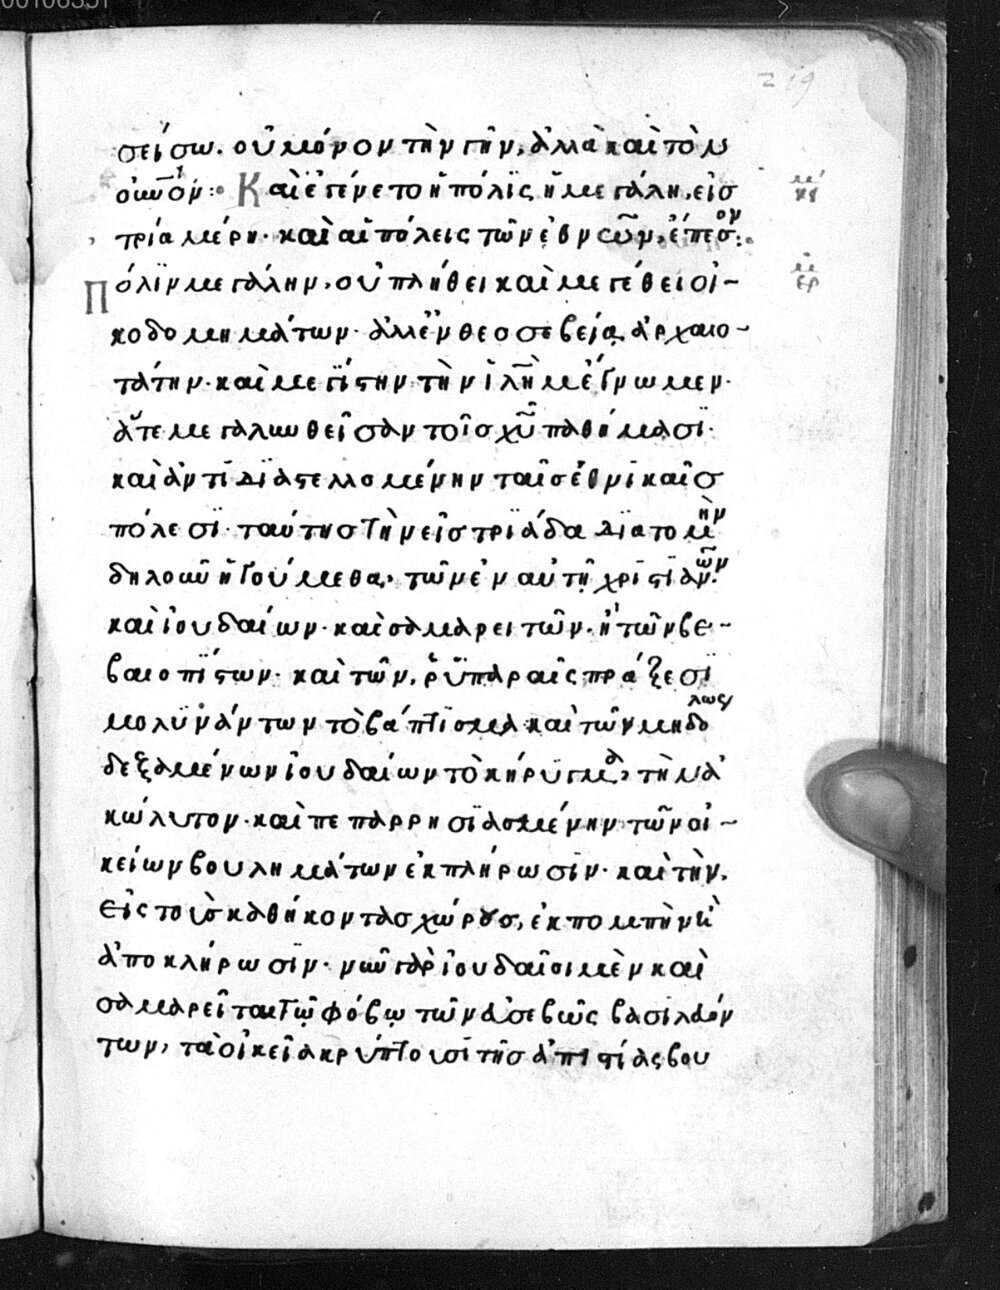 219
σείσω. οὐ μόνον τὴν γῆν, ἀλλὰ καὶ τὸν
οὐνόν: Καὶ ἐγένετο ἡ πόλϊς ἡ μεγάλη, εἰσ
τρία μέρη· καὶ αἱ πόλεις τῶν ἐθνῶν, ἔπεσον:
Πόλϊν μεγάλην, οὐ πλήθει καὶ μεγέθει οἰ-
κοδομημάτων· ἀλλ' ἐν θεοσεβείᾳ ἀρχαιο-
τάτην· καὶ μεγίστην τὴν ἱλὴμ ἔγνωμεν·
ἅτε μεγαλυνθεῖσαν τοῖσ χῦ παθήμασϊ·
καὶ ἀντιδϊαστελλομένην ταῖσ ἐθνικαῖσ
πόλεσϊ· ταύτησ τὴν εἰσ τριάδα διατομὴν
δηλοῦν ἡγούμεθα, τῶν ἐν αὐτῇ χριστϊανῶν·
καὶ ἰουδαίων· καὶ σαμαρειτῶν· ἢ τῶν βε-
βαιοπίστων· καὶ τῶν, ῥυπαραῖς πράξεσϊ
μολϋνάντων τὸ βάπτισμα· καὶ τῶν μηδόλως
δεξαμένων ἰουδαίων τὸ κήρϋγμα, τὴν ἀ
κώλυτον· καὶ πεπαρρησϊασμένην τῶν οἰ-
κείων βουλημάτων ἐκπλήρωσϊν· καὶ τὴν,
εἰς τοὺσ καθήκοντασ χώρουσ, ἐκπομπὴν κὶ
ἀποκλήρωσϊν· νῦν γὰρ ἰουδαῖοι μὲν καὶ
σαμαρεῖται τῷ φόβῳ τῶν εὐσεβῶς βασιλευόν
των, τὰ οἰκεῖα κρύπτουσϊ τῆσ ἀπιστίας βου